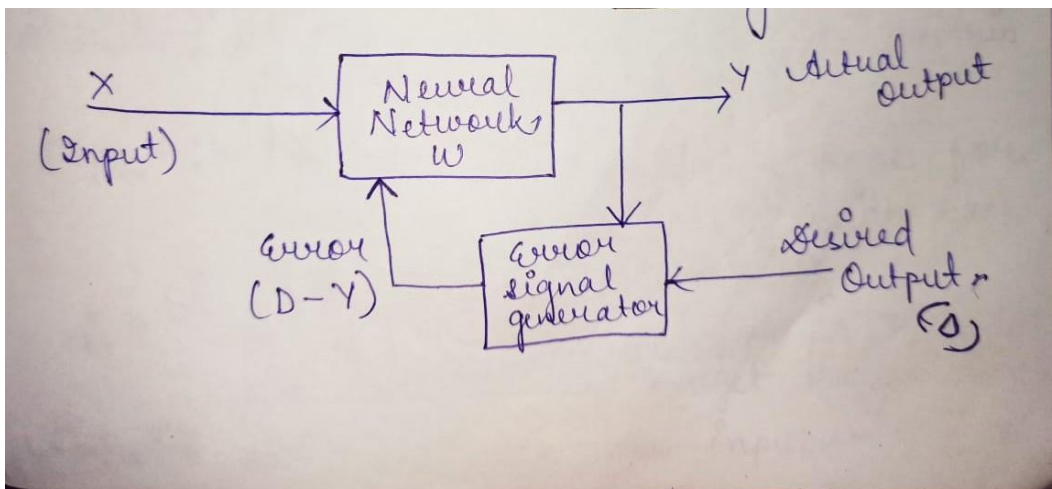 X
(Input)
Neural
Network,
W
Y Actual
Output
Error
(D-Y)
Error
signal
generator
Desired
Output.
(D)